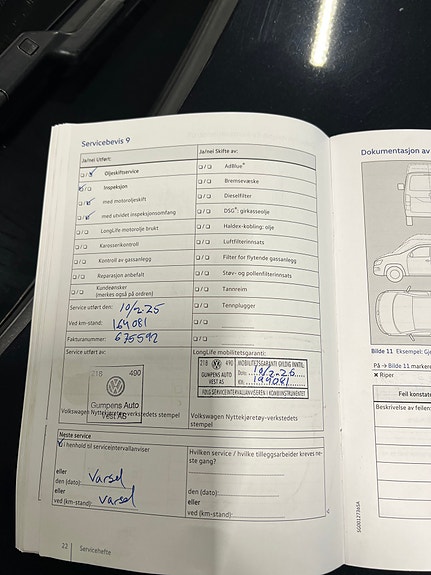 Servicebevis 9
Ja/nei Utført:
Ja/nei Skifte av:
Oljeskiftservice
AdBlue®
Inspeksjon
Bremsevæske
med motoroljeskift
Dieselfilter
med utvidet inspeksjonsomfang
DSG®: girkasseolje
LongLife motorolje brukt
Haldex-kobling: olje
Karosserikontroll
Luftfilterinnsats
Kontroll av gassanlegg
Filter for flytende gassanlegg
Reparasjon anbefalt
Støv- og pollenfilterinnsats
Kundeønsker
(merkes også på ordren)
Tannreim
Service utført den: 10/2-25
Tennplugger
Ved km-stand: 164081
Fakturanummer: 675592
Service utført av:
LongLife mobilitetsgaranti:
218 490
Gumpens Auto
Vest AS
Volkswagen Nyttekjøretøy-verkstedets
stempel
218 490
GUMPENS AUTO
VEST AS
MOBILITETSGARANTI GYLDIG INNTIL
Dato: 10/2-26
KM: 194081
FØLG SERVICEINTERVALLANVISEREN I KOMBIINSTRUMENTET
Volkswagen Nyttekjøretøy-verkstedets
stempel
Neste service
I henhold til serviceintervallanviser
eller
den (dato): Varsel
eller
ved (km-stand): Varsel
Hvilken service / hvilke tilleggsarbeider kreves neste gang?
den (dato):
eller
ved (km-stand):
22 Servicehefte
Dokumentasjon av
Bilde 11 Eksempel:
På → Bilde 11
× Riper
Feil
Beskrivelse av feilen: